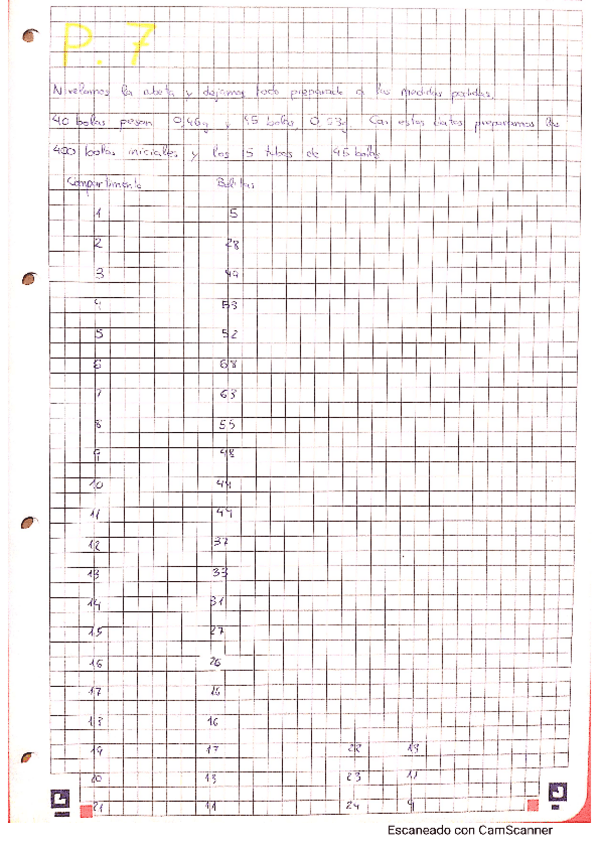 P. 7
Nivelamos la rubota y dejamos todo preparado a las medidas pedidas.
40 bolas pesan 0,46g y 45 bolas 0,53g. Con estos datos preparamos las
400 bolas iniciales y los 15 tubos de 45 bolas
Compartimento Bolitas
1 5
2 28
3 44
4 53
5 52
6 68
7 63
8 55
9 48
10 44
11 44
12 37
13 33
14 31
15 27
16 26
17 16
18 16
19 17 22 13
20 13 23 11
21 11 24 9
Escaneado con CamScanner